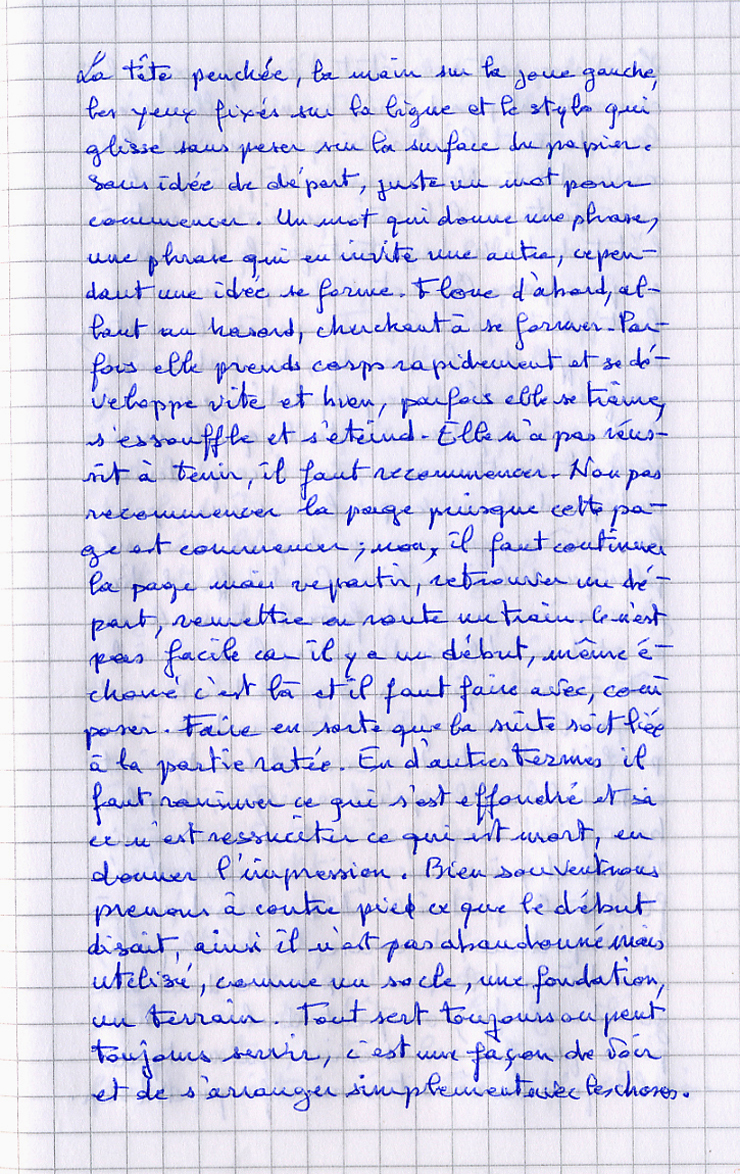 La tête penchée, la main sur la joue gauche,
les yeux fixés sur la ligne et le stylo qui
glisse sans peser sur la surface du papier.
Sans idée de départ, juste un mot pour
commencer. Un mot qui donne une phrase,
une phrase qui en invite une autre, cepen-
dant une idée se forme. Floue d'abord, al-
lant au hasard, cherchant à se former. Par-
fois elle prends corps rapidement et se dé-
veloppe vite et bien, parfois elle se traîne,
s'essouffle et s'eteind. Elle n'a pas réus-
sit à tenir, il faut recommencer. Non pas
recommencer la page puisque cette pa-
ge est commencer; non, il faut continuer
la page mais repartir, retrouver un dé-
part, remettre en route un train. Ce n'est
pas facile car il y a un début, même é-
choué c'est là et il faut faire avec, com
poser. Faire en sorte que la suite soit liée
à la partie ratée. En d'autres termes il
faut ranimer ce qui s'est effondré et si
ce n'est ressuciter ce qui est mort, en
donner l'impression. Bien souvent nous
prenons à contre pied ce que le début
disait, ainsi il n'est pas abandonné mais
utilisé, comme un socle, une fondation,
un terrain. Tout sert toujours ou peut
toujours servir, c'est une façon de voir
et de s'arranger simplement avec les choses.